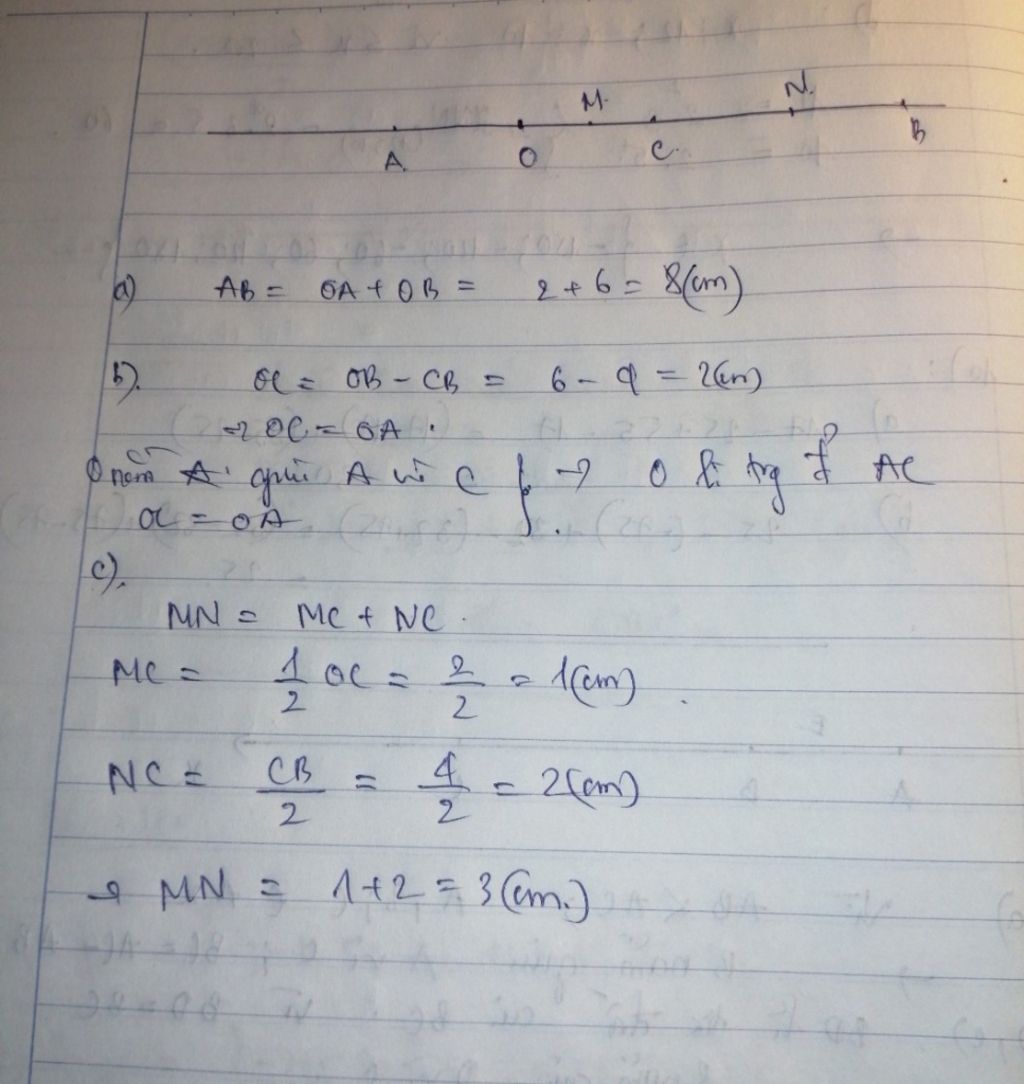 M. N.
A. O C. B
a) AB = OA + OB = 2 + 6 = 8(cm)
b). OC = OB - CB = 6 - 4 = 2(cm)
→ OC = OA.
O nằm giữa A và C } → O là trg đ AC
OC = OA
c).
MN = MC + NC.
MC = 1/2 OC = 2/2 = 1(cm)
NC = CB/2 = 4/2 = 2(cm)
→ MN = 1+2 = 3(cm.)